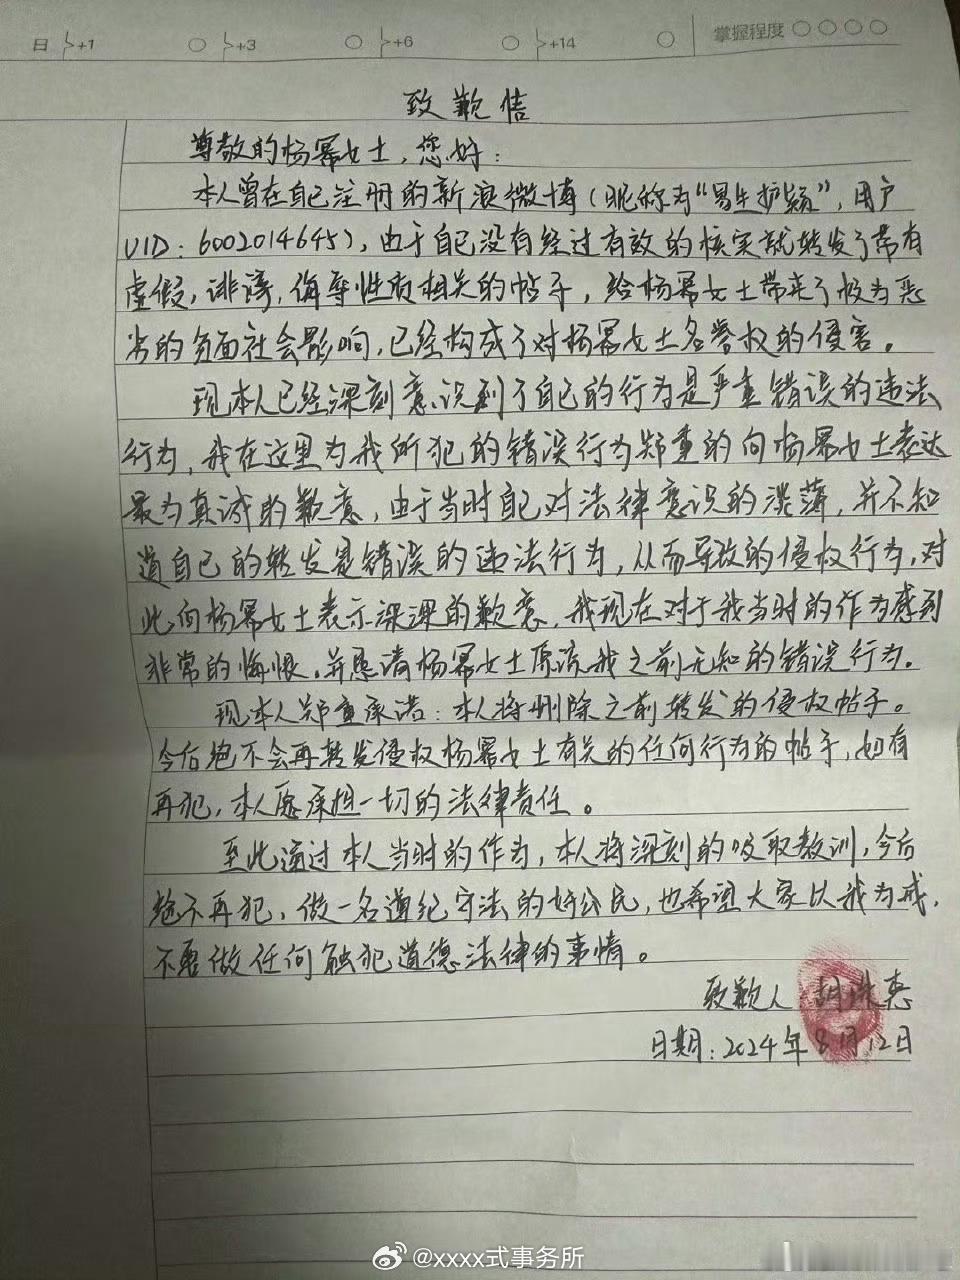 日 +1 +3 +6 +14 掌握程度
致歉信
尊敬的杨幂女士，您好：
本人曾在自己注册的新浪微博（昵称为“易生护颖”，用户
UID：6002014645），由于自己没有经过有效的核实就转发了带有
虚假，诽谤，侮辱性质相关的帖子，给杨幂女士带来了极为恶
劣的负面社会影响，已经构成了对杨幂女士名誉权的侵害。
现本人已经深刻意识到了自己的行为是严重错误的违法
行为，我在这里为我所犯的错误行为郑重的向杨幂女士表达
最为真诚的歉意，由于当时自己对法律意识的淡薄，并不知
道自己的转发是错误的违法行为，从而导致的侵权行为，对
此向杨幂女士表示深深的歉意，我现在对于我当时的作为感到
非常的悔恨，并恳请杨幂女士原谅我之前无知的错误行为。
现本人郑重承诺：本人将删除之前转发的侵权帖子。
今后绝不会再转发侵权杨幂女士有关的任何行为的帖子，如有
再犯，本人愿承担一切的法律责任。
至此通过本人当时的作为，本人将深刻的吸取教训，今后
绝不再犯，做一名遵纪守法的好公民，也希望大家以我为戒，
不要做任何触犯道德法律的事情。
致歉人 胡
日期：2024年8月12日
@xxxx式事务所